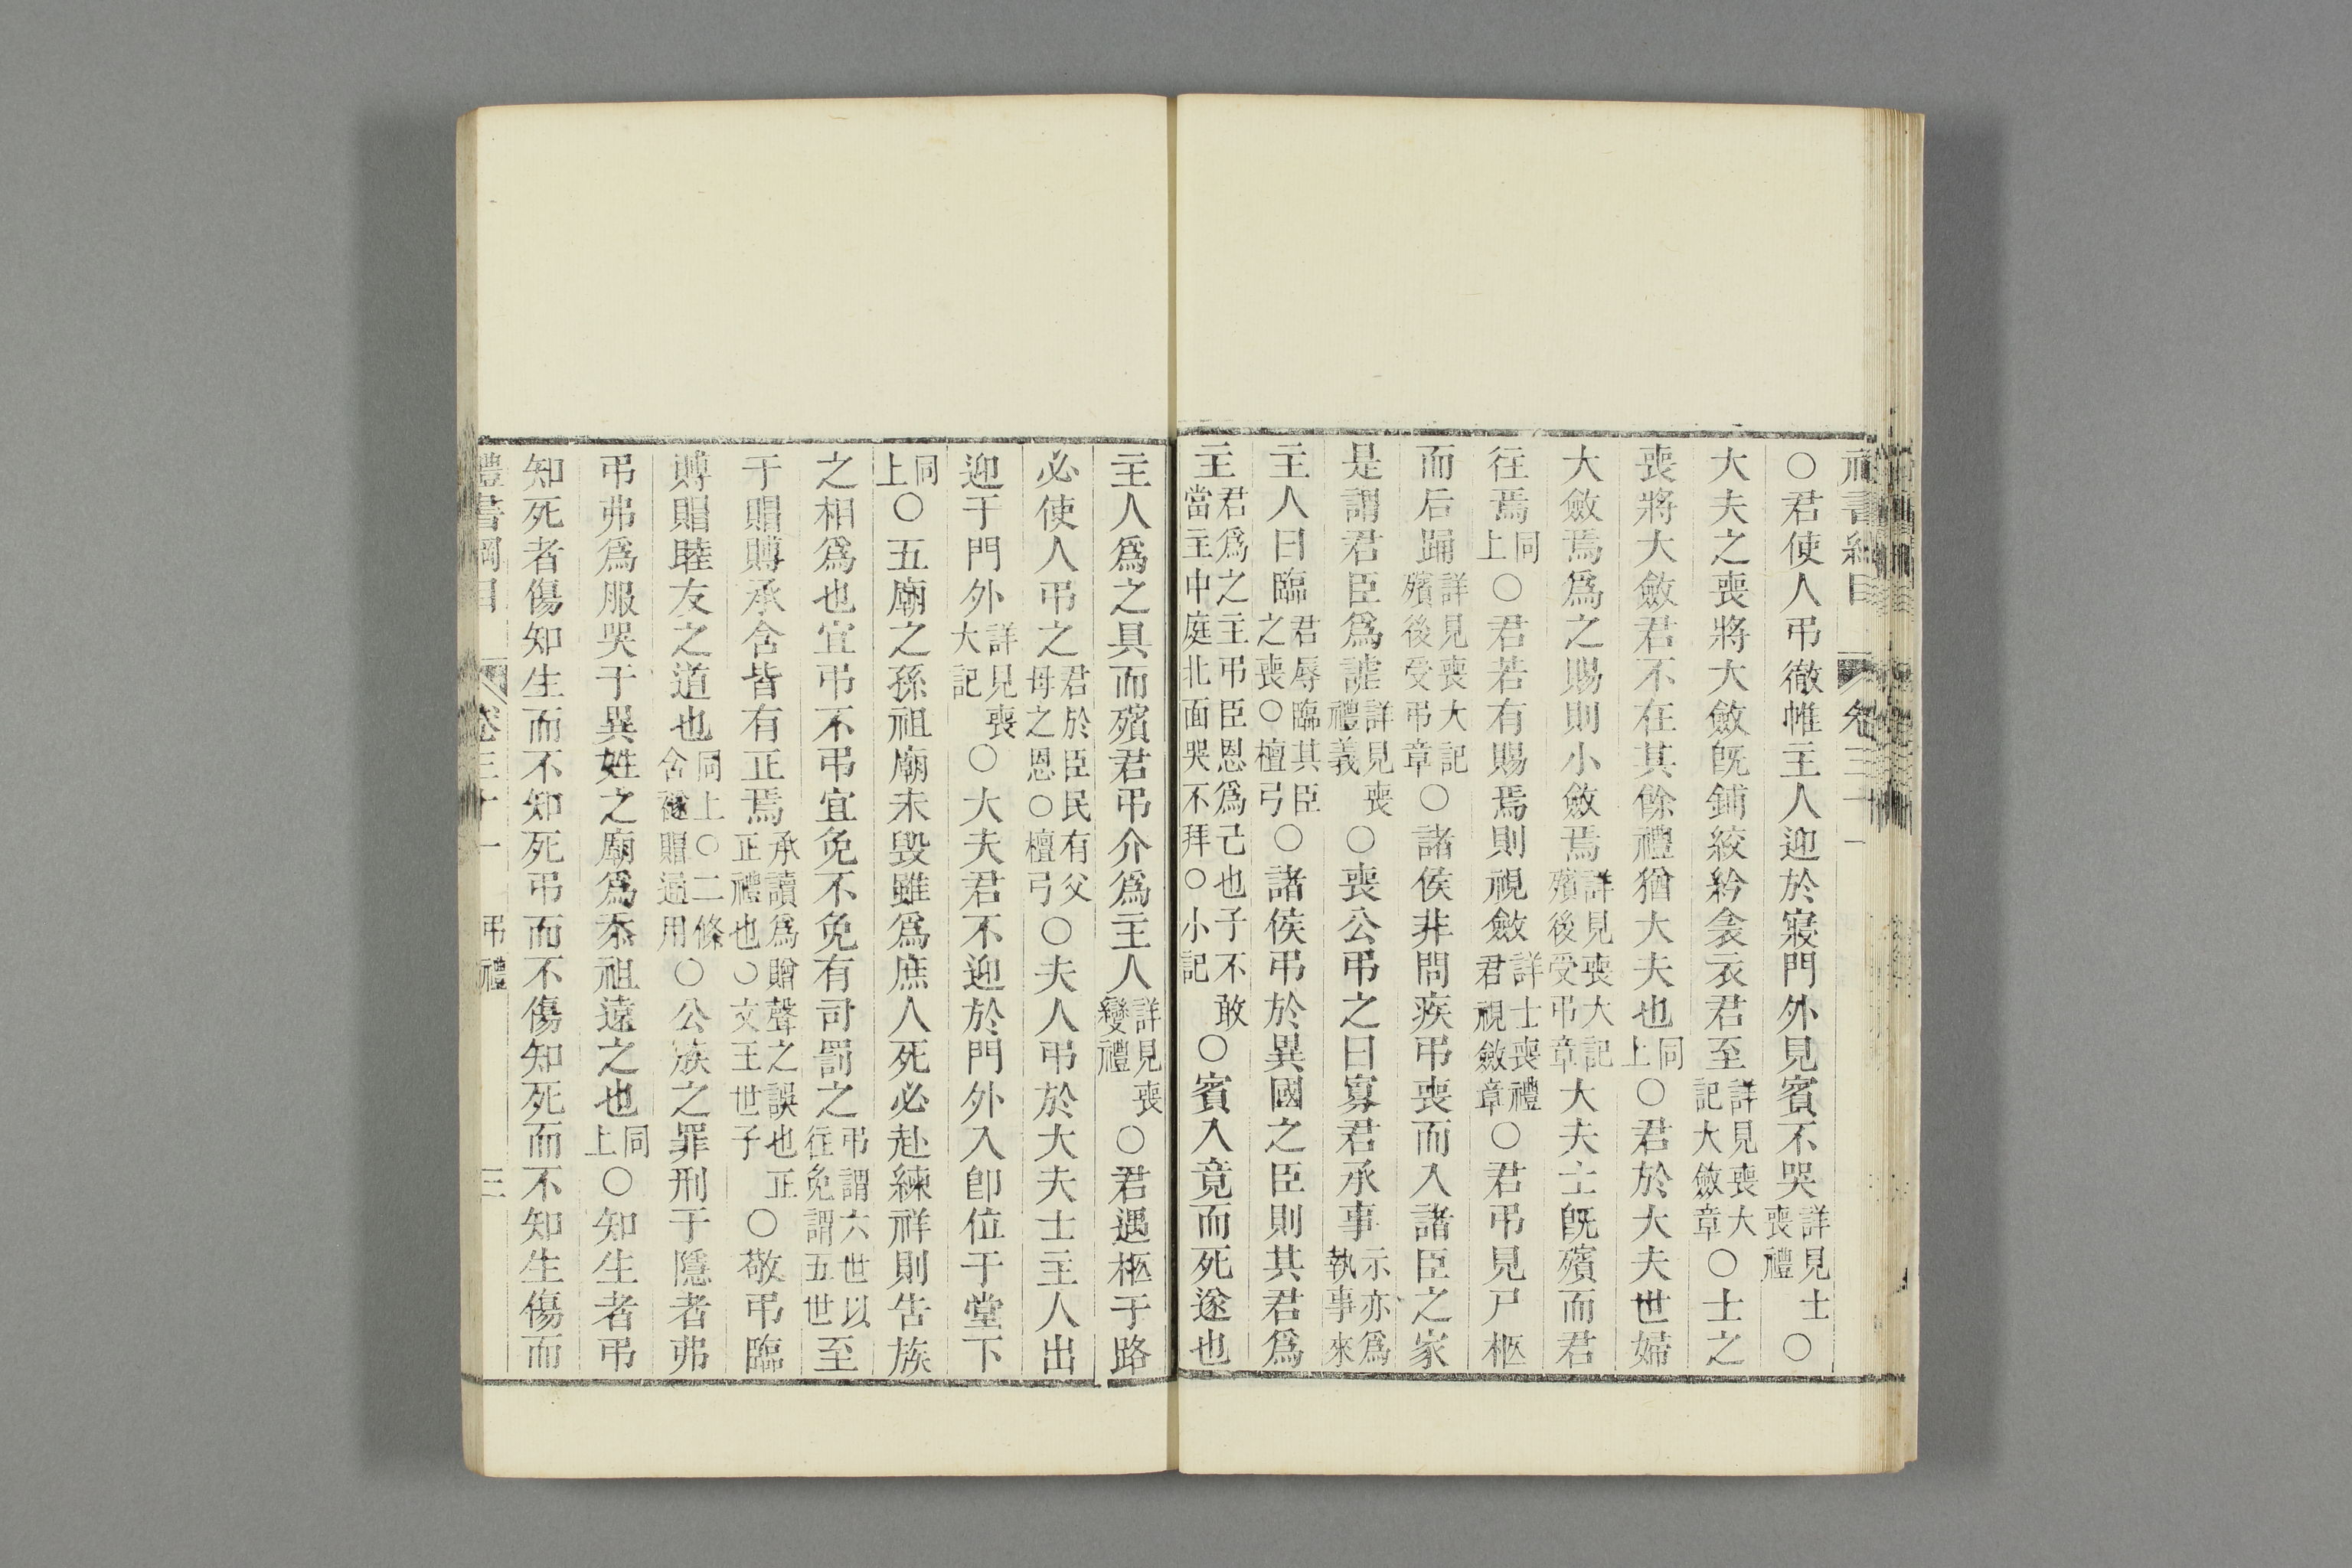 〇君使人弔徹帷主人迎於寢門外見賓不哭詳見士喪禮〇
大夫之喪將大斂旣鋪絞紟衾衣君至詳見喪大記大斂章〇士之
喪將大斂君不在其餘禮猶大夫也同上〇君於大夫世婦
大斂焉爲之賜則小斂焉詳見喪大記殯後受弔章大夫士旣殯而君
往焉同上〇君若有賜焉則視斂詳士喪禮君視斂章〇君弔見尸柩
而后踊詳見喪大記殯後受弔章〇諸侯非問疾弔喪而入諸臣之家
是謂君臣爲謔詳見喪禮義〇喪公弔之曰寡君承事示亦爲執事來
主人曰臨君辱臨其臣之喪〇檀弓〇諸侯弔於異國之臣則其君爲
主君爲之主弔臣恩爲己也子不敢當主中庭北面哭不拜〇小記〇賓入竟而死遂也
主人爲之具而殯君弔介爲主人詳見喪變禮〇君遇柩于路
必使人弔之君於臣民有父母之恩〇檀弓〇夫人弔於大夫士主人出
迎于門外詳見喪大記〇大夫君不迎於門外入卽位于堂下
同上〇五廟之孫祖廟未毀雖爲庶人死必赴練祥則告族
之相爲也宜弔不弔宜免不免有司罰之弔謂六世以往免謂五世至
于賵賻承含皆有正焉承讀爲贈聲之誤也正正禮也〇文王世子〇敬弔臨
賻賵睦友之道也同上〇二條含襚賵通用〇公族之罪刑于隱者弗
弔弗爲服哭于異姓之廟爲忝祖遠之也同上〇知生者弔
知死者傷知生而不知死弔而不傷知死而不知生傷而
禮書綱目 卷三十一 弔禮 三